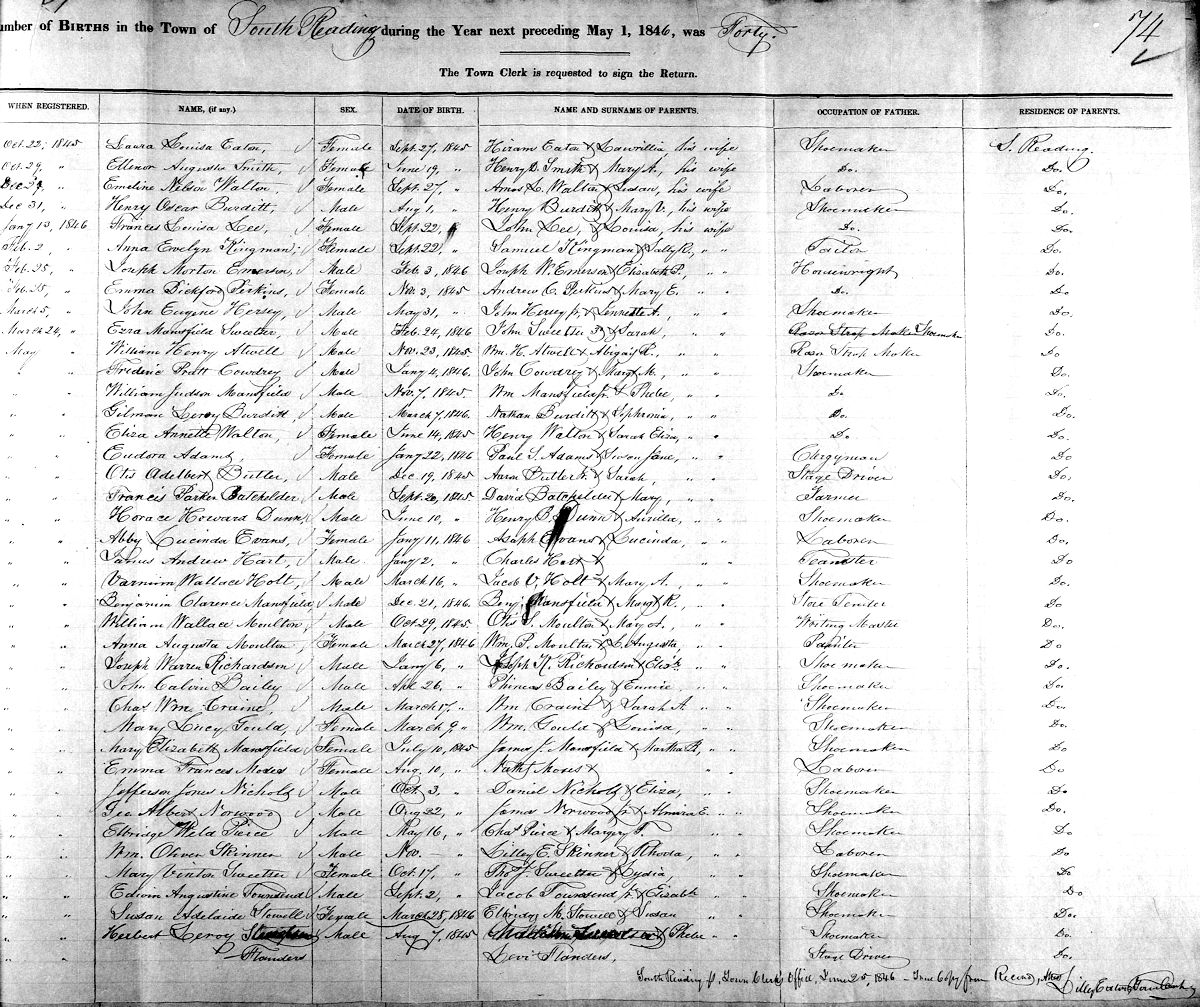 umber of BIRTHS in the Town of South Reading during the Year next preceding May 1, 1846, was Forty. 74
The Town Clerk is requested to sign the Return.
WHEN REGISTERED. NAME, (if any.) SEX. DATE OF BIRTH. NAME AND SURNAME OF PARENTS. OCCUPATION OF FATHER. RESIDENCE OF PARENTS.
Oct. 22, 1845 Laura Louisa Eaton, Female Sept. 27, 1845 Hiram Eaton & Lawrilla, his wife Shoemaker S. Reading.
Oct. 29, " Ellenor Augusta Smith, Female June 19, " Henry D. Smith & Mary A., his wife Do. Do.
Dec. 29, " Emeline Nelson Walton, Female Sept. 27, " Amos L. Walton & Susan, his wife Laborer Do.
Dec 31, " Henry Oscar Burditt, Male Aug 1, " Henry Burditt & Mary V., his wife Shoemaker Do.
Jany 13, 1846 Frances Louisa Lee, Female Sept. 22, " John Lee, & Louisa, his wife Do. Do.
Feb. 2, " Anna Evelyn Kingman, Female Sept. 22, " Samuel Kingman & Sally C., " " Tailor Do.
Feb. 25, " Joseph Morton Emerson, Male Feb. 3, 1846 Joseph W. Emerson & Elisabeth P., " " Housewright Do.
Feb. 25, " Emma Bickford Perkins, Female Nov. 3, 1845 Andrew C. Perkins & Mary E. " " Do. Do
March 5, " John Eugene Hersey, Male May 31, " John Hersey Jr. & Lennette A., " " Shoemaker Do.
March 24, " Ezra Mansfield Sweetser, Male Feb. 24, 1846 John Sweetser 3d & Sarah, " " Razor Strop Maker Shoemaker Do
May " William Henry Atwell Male Nov. 23, 1845 Wm. H. Atwell & Abigail R., " " Razor Strop Maker Do
Frederic Pratt Cowdrey Male Jany 4, 1846. John Cowdrey & Margt M., " " Shoemaker Do.
" " William Judson Mansfield Male Nov. 7, 1845. Wm. Mansfield Jr. & Phebe, " " Do Do.
" " Gilman Leroy Burditt, Male March 7, 1846. Nathan Burditt & Sophronia, " " Do. Do.
" " Eliza Annette Walton, Female June 14, 1845 Henry Walton & Sarah Eliza, " " Do Do
" " Eudora Adams, Female Jany 22, 1846 Paul S. Adams & Susan Jane, " " Clergyman Do
" " Otis Adelbert Butler, Male Dec. 19, 1845 Aaron Butler Jr. & Sarah, " " Stage Driver Do.
" " Francis Parker Batchelder Male Sept. 20, 1845 David Batchelder & Mary, " " Farmer Do
" " Horace Howard Dunn, Male June 10, " Henry B. Dunn & Aurilla, " " Shoemaker Do.
" " Abby Lucinda Evans, Female Jany 11, 1846 Asaph Evans & Lucinda, " " Laborer Do.
" " James Andrew Hart, Male Jany 2, " Charles Hart & " " Teamster Do
" " Varnum Wallace Holt, Male March 16, " Jacob V. Holt & Mary A., " " Shoemaker Do
" " Benjamin Clarence Mansfield, Male Dec. 21, 1846. Benj. Mansfield & Margt R., " " Store Tender Do
" " William Wallace Moulton, Male Oct. 29, 1845 Otis S. Moulton & Mary A., " " Writing Master Do.
" " Anna Augusta Moulton, Female March 27, 1846 Wm. P. Moulton & L. Augusta, " " Painter Do
" " Joseph Warren Richardson Male Jany 6, " Joseph N. Richardson & Eliz'h " " Shoemaker Do.
" " John Calvin Bailey Male Apl. 26, " Phineas Bailey & Eunice, " " Shoemaker Do.
" " Chas Wm. Traine, Male March 17, " Wm Traine & Sarah A. " " Shoemaker Do
" " Mary Lucy Gould, Female March 9, " Wm. Gould & Louisa, " " Shoemaker Do
" " Mary Elizabeth Mansfield Female July 10, 1845 James J. Mansfield & Martha B., " " Shoemaker Do
" " Emma Frances Moses Female Aug. 10, " Nathl Moses & " Laborer Do
" " Jefferson Jones Nichols Male Oct. 3 " Daniel Nichols & Eliza, " " Shoemaker Do.
" " Geo Albert Norwood Male Aug 22, " James Norwood Jr. & Almira E. " " Shoemaker Do.
" " Elbridge Weld Pierce Male May 16, " Chas Pierce & Margery T. " " Shoemaker Do
" " Wm. Oliver Skinner Male Nov. " Lilley E. Skinner & Rhoda, " " Laborer Do
" " Mary Vinton Sweetser Female Oct. 17, " Thos J. Sweetser & Lydia, " " Shoemaker Do
" " Edwin Augustine Townsend Male Sept. 2, " Jacob Townsend Jr. & Elizabth " " Shoemaker Do
" " Susan Adelaide Stowell Female March 28, 1846 Elbridge M. Stowell & Susan " " Shoemaker Do.
" " Herbert Leroy Male Aug 7, 1845 & Phebe " " Shoemaker Do.
" " Flanders Levi Flanders, Stage Driver Do.
South Reading ss, Town Clerk's Office, June 25, 1846 - True Copy from Record, Attest Lilley Eaton, Town Clerk